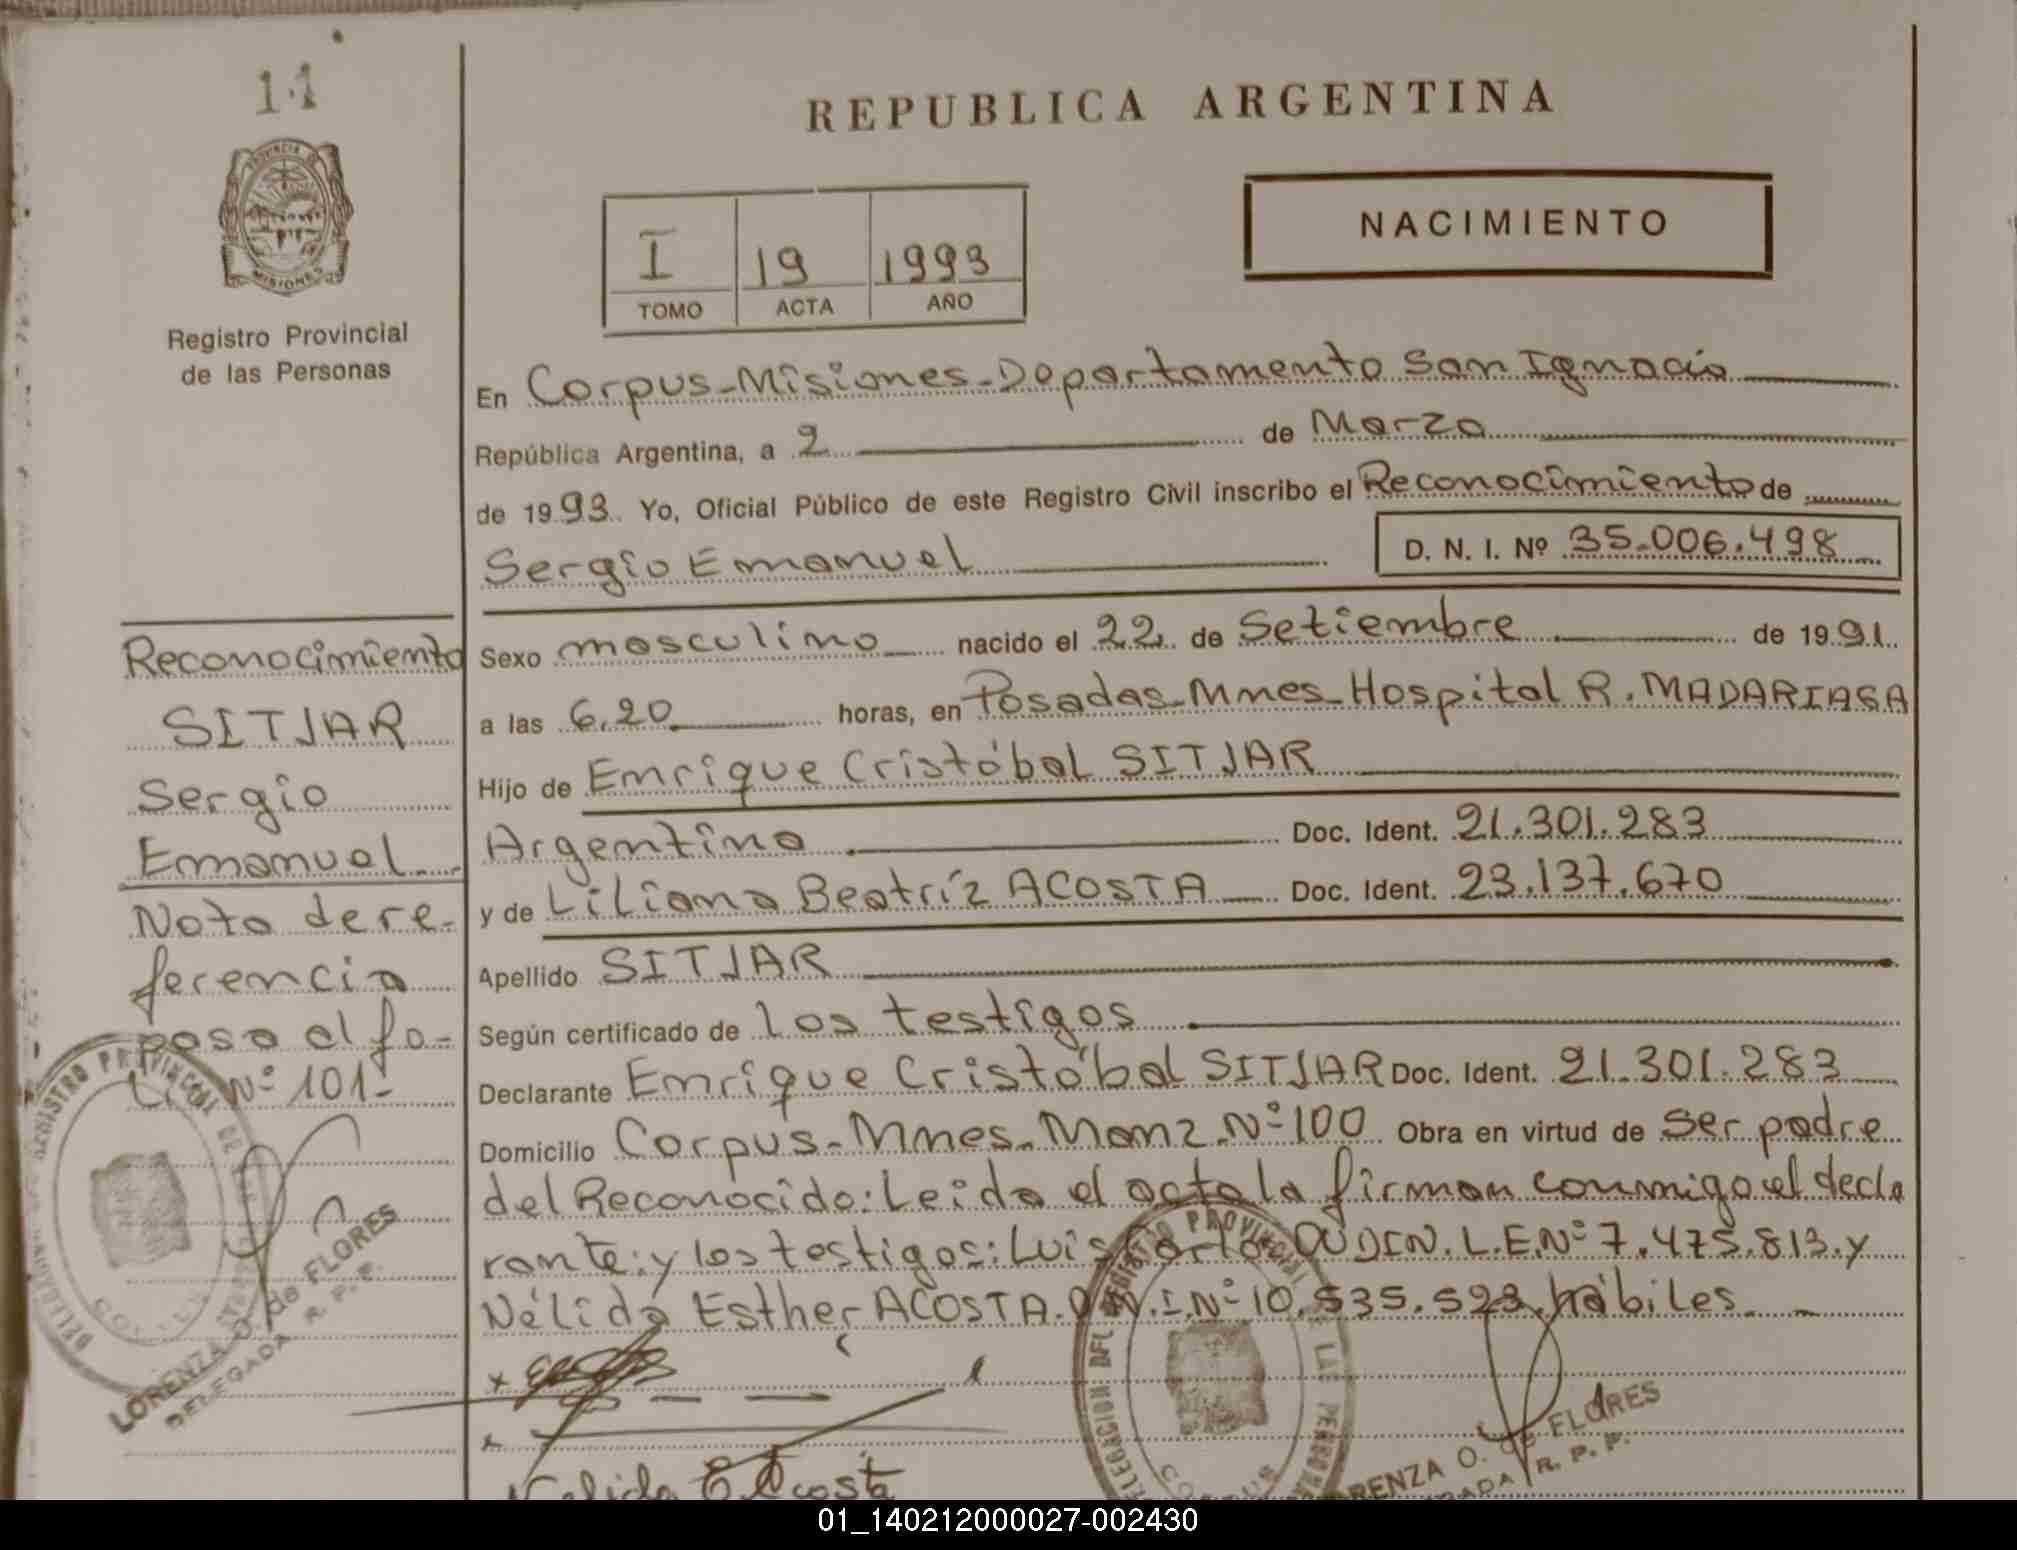 11
REPUBLICA ARGENTINA
PROVINCIA DE
MISIONES
Registro Provincial
de las Personas
I 19 1993
TOMO ACTA AÑO
NACIMIENTO
En Corpus-Misiones-Departamento San Ignacio
República Argentina, a 2 de Marzo
de 1993. Yo, Oficial Público de este Registro Civil inscribo el Reconocimiento de
Sergio Emanuel
D. N. I. Nº 35.006.498
Sexo masculino nacido el 22 de Setiembre de 1991.
a las 6.20 horas, en Posadas-Mnes-Hospital R. MADARIAGA
Hijo de Enrique Cristóbal SITJAR
Argentino Doc. Ident. 21.301.283
y de Liliana Beatríz ACOSTA Doc. Ident. 23.137.670
Apellido SITJAR
Según certificado de los testigos
Declarante Enrique Cristóbal SITJAR Doc. Ident. 21.301.283
Domicilio Corpus-Mnes-Manz.Nº100 Obra en virtud de ser padre
del Reconocido: Leida el acta la firman conmigo el decla
rante: y los testigos: Luis OUDIN. L.E.Nº 7.475.813.y
Nélida Esther ACOSTA. D.N.I.Nº 10.535.523. hábiles.
Reconocimiento
SITJAR
Sergio
Emanuel
Nota de re-
ferencia
pasa al fo-
lio Nº 101-
LORENZA O. de FLORES
DELEGADA R. P. P.
Nélida E Acosta
DELEGACION DEL REGISTRO PROVINCIAL DE LAS PERSONAS
CORPUS
LORENZA O. de FLORES
DELEGADA R. P. P.
01_140212000027-002430